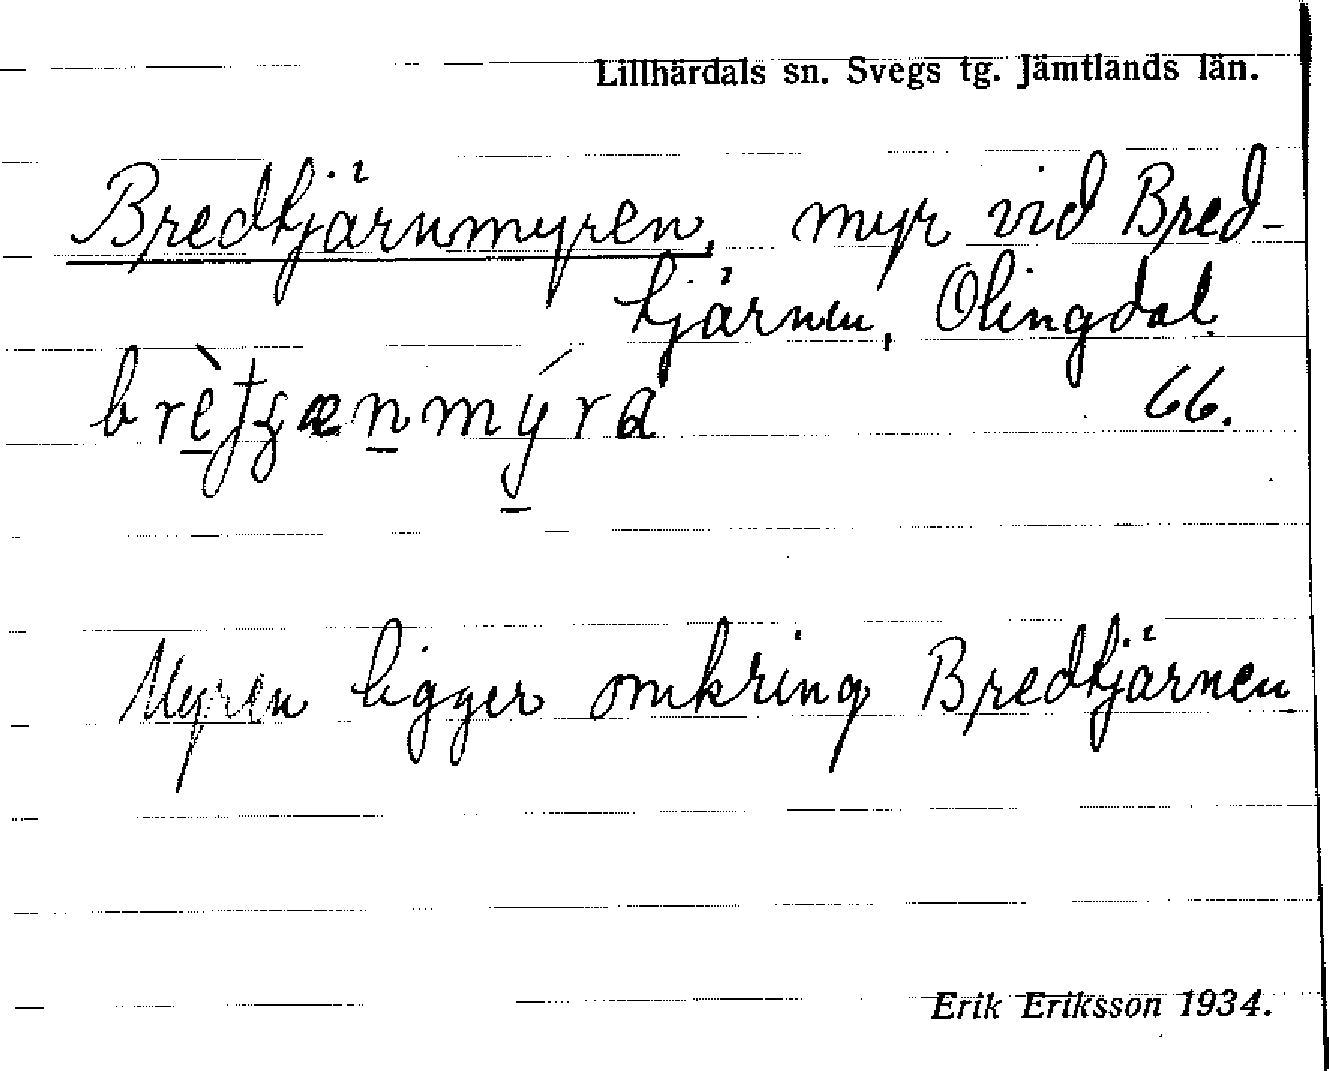 Lillhärdals sn. Svegs tg. Jämtlands län.
Bredtjärnmyren, myr vid Bred-
tjärnen, Olingdal.
66.
Myren ligger omkring Bredtjärnen
Erik Eriksson 1934.